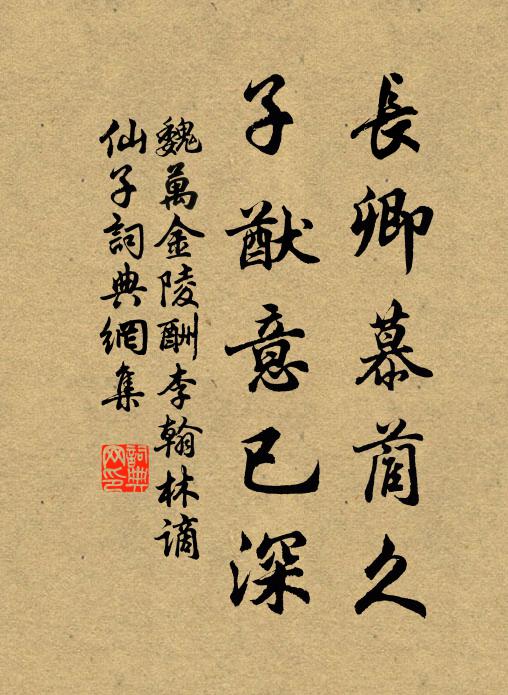 長卿慕藺久
子猷意已深
魏萬金陵酬李翰林謫
仙子詞典網集
詞典
网印